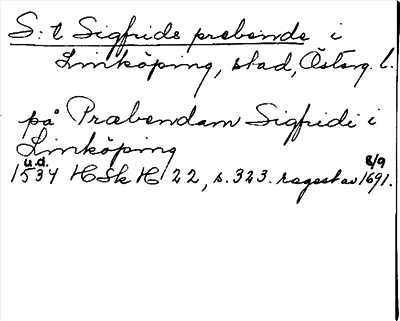 S:t Sigfrids prebende i
Linköping, stad, Österg. l.
på Præbendam Sigfridi i
Linköping
u.d. 8/9
1534 HSk H 22, s. 323. regest av 1691.